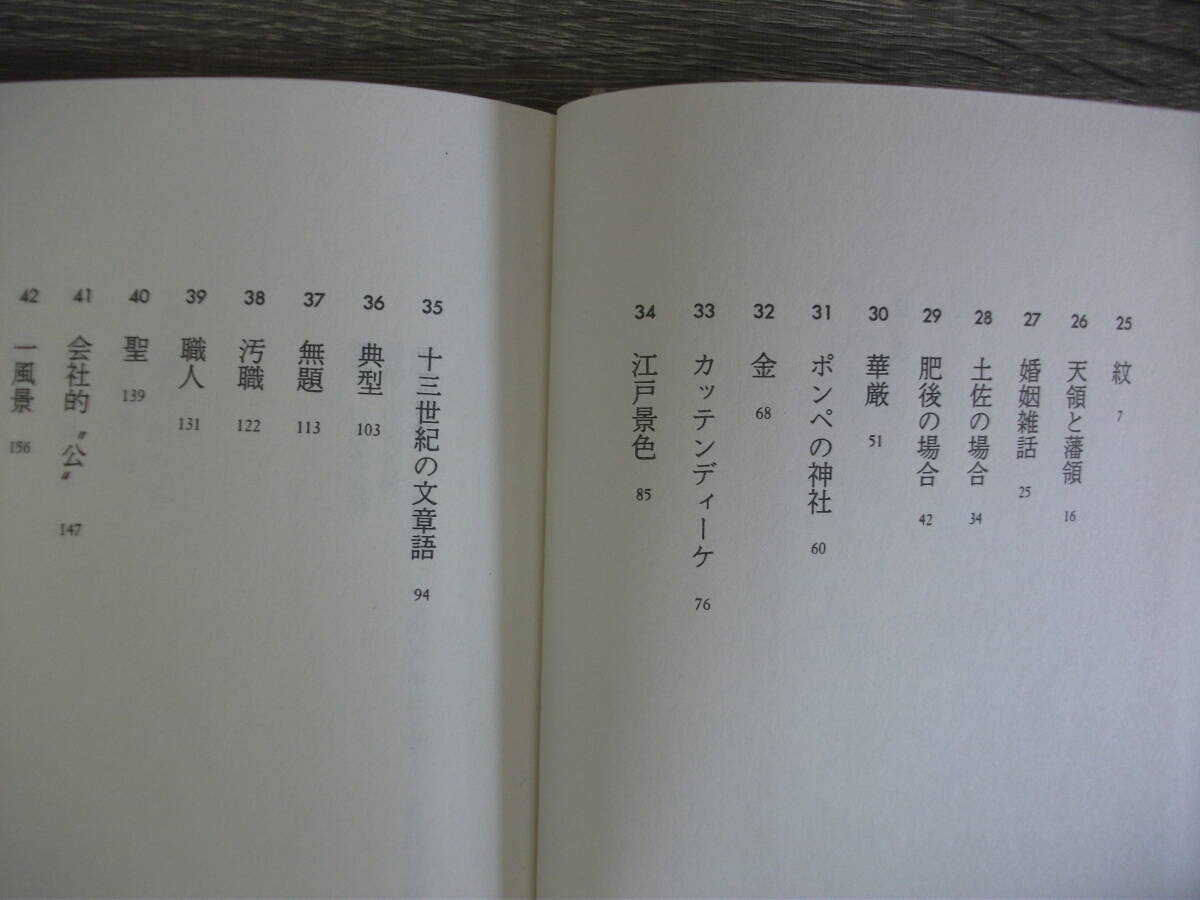 25 紋 7
26 天領と藩領 16
27 婚姻雑話 25
28 土佐の場合 34
29 肥後の場合 42
30 華厳 51
31 ポンペの神社 60
32 金 68
33 カッテンディーケ 76
34 江戸景色 85
35 十三世紀の文章語 94
36 典型 103
37 無題 113
38 汚職 122
39 職人 131
40 聖 139
41 会社的〝公〟 147
42 一風景 156